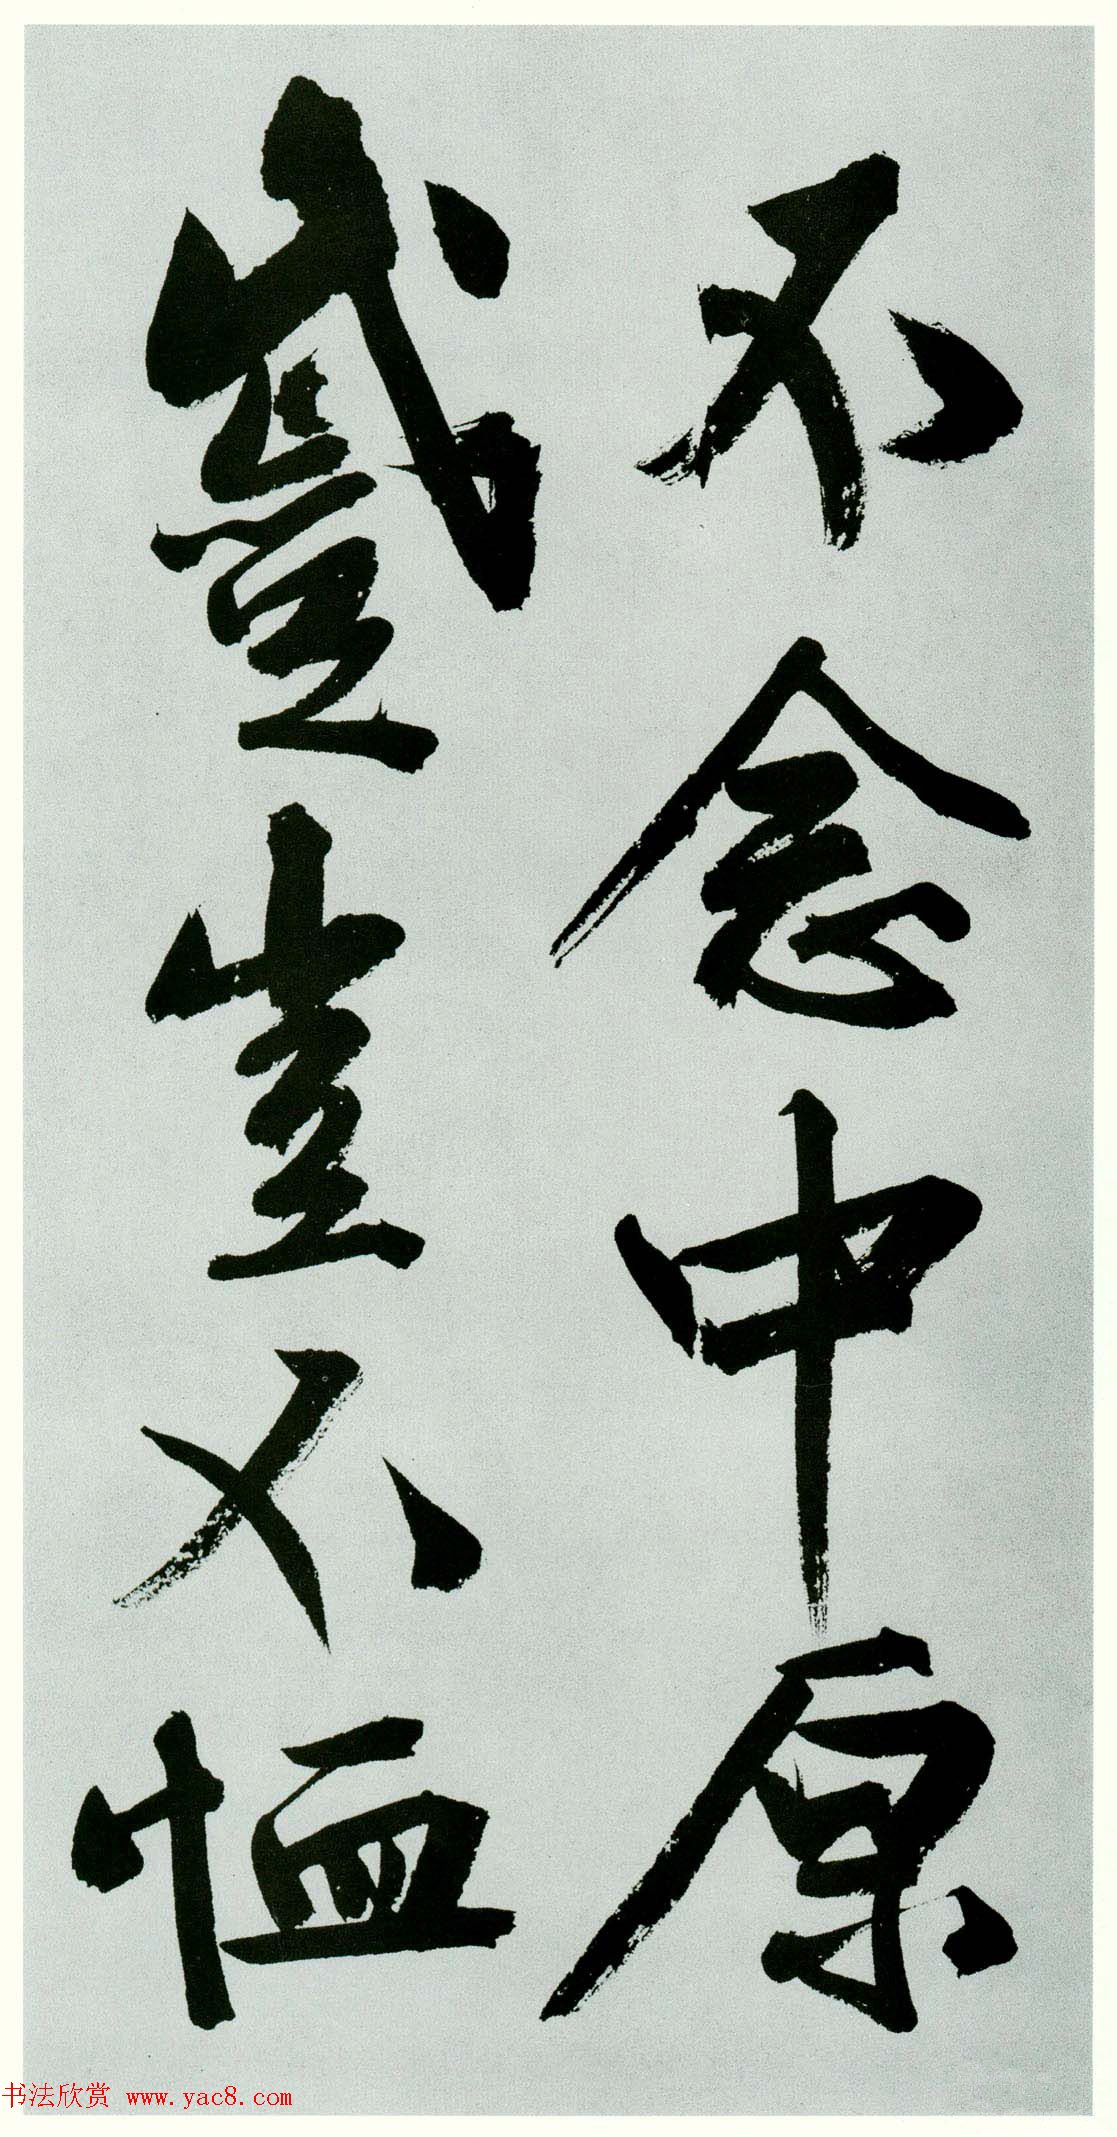 不念中原
蹙豈不恤
书法欣赏 www.yac8.com